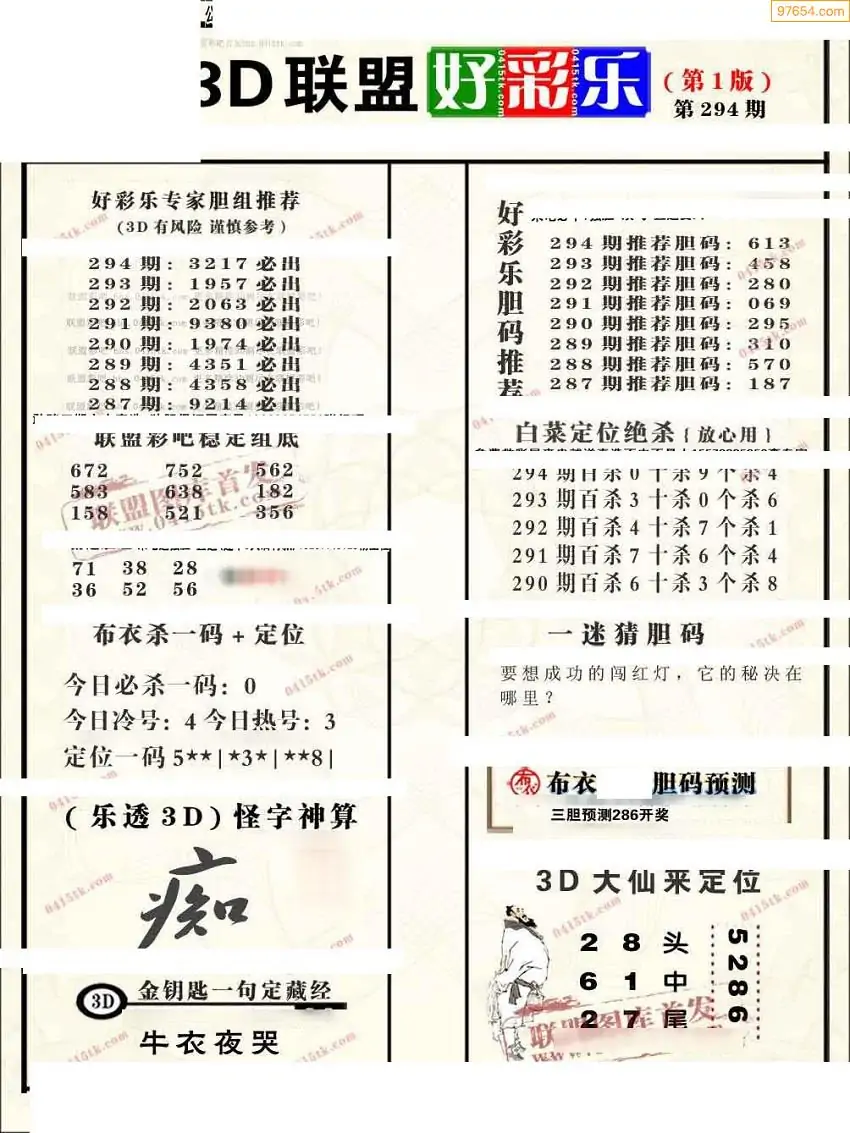 97654.com
3D联盟好彩乐(第1版)
第294期
好彩乐专家胆组推荐
(3D有风险 谨慎参考)
294期: 3217必出
293期: 1957必出
292期: 2063必出
291期: 9380必出
290期: 1974必出
289期: 4351必出
288期: 4358必出
287期: 9214必出
联盟彩吧稳定组底
672 752 562
583 638 182
158 521 356
71 38 28
36 52 56
布衣杀一码+定位
今日必杀一码: 0
今日冷号: 4 今日热号: 3
定位一码5**|*3*|**8|
(乐透3D)怪字神算
痴
3D 金钥匙一句定藏经
牛衣夜哭
好彩乐胆码推荐
294期推荐胆码: 613
293期推荐胆码: 458
292期推荐胆码: 280
291期推荐胆码: 069
290期推荐胆码: 295
289期推荐胆码: 310
288期推荐胆码: 570
287期推荐胆码: 187
白菜定位绝杀{放心用}
294期百杀0十杀9个杀4
293期百杀3十杀0个杀6
292期百杀4十杀7个杀1
291期百杀7十杀6个杀4
290期百杀6十杀3个杀8
一迷猜胆码
要想成功的闯红灯，它的秘决在
哪里？
布衣 胆码预测
三胆预测286开奖
3D大仙来定位
2 8 头
6 1 中
2 7 尾
5286
联盟图库首发
www.0415tk.com
0415tk.com